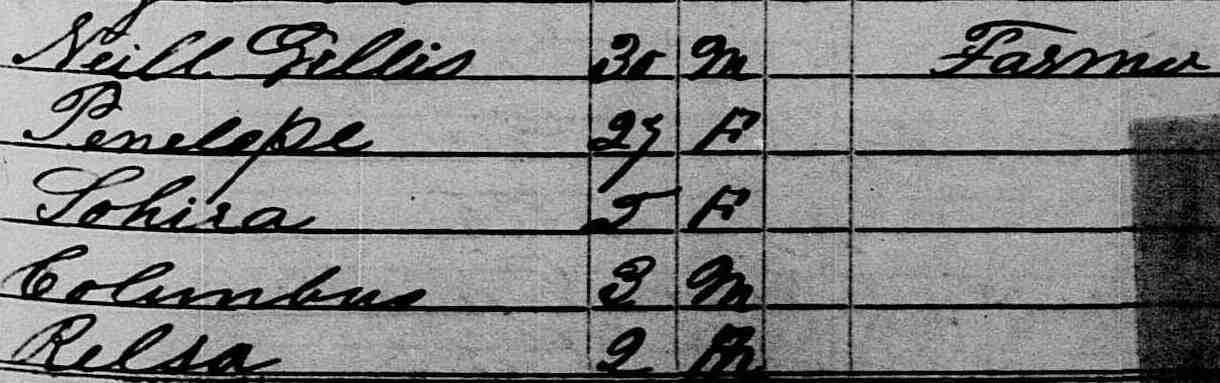 Neill Gillis 30 M Farmer
Penelope 27 F
Sohira 5 F
Columbus 3 M
Relsa 2